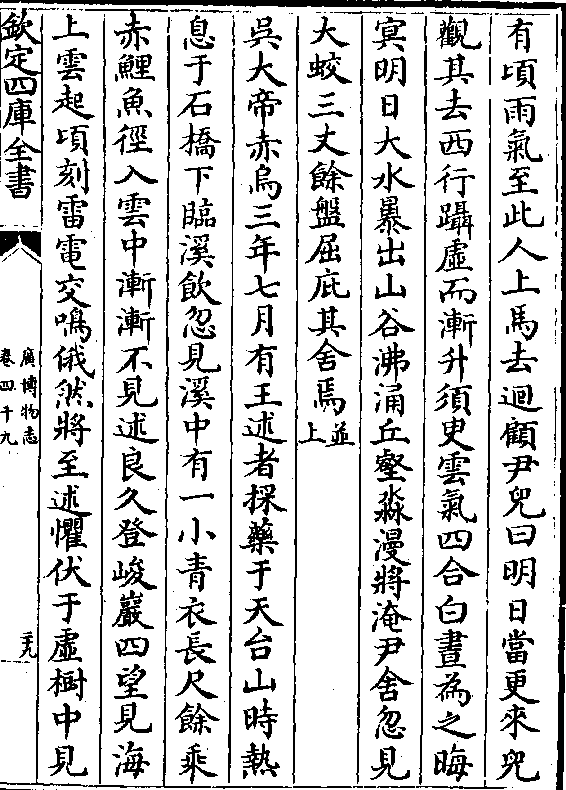 有頃雨氣至此人上馬去迴顧尹兒曰明日當更來兒
觀其去西行躡虛而漸升須臾雲氣四合白晝為之晦
冥明日大水暴出山谷沸涌丘壑淼漫將淹尹舍忽見
大蛟三丈餘盤屈庇其舍焉並上
吳大帝赤烏三年七月有王述者採藥于天台山時熱
息于石橋下臨溪飲忽見溪中有一小青衣長尺餘乘
赤鯉魚徑入雲中漸漸不見述良久登峻巖四望見海
上雲起頃刻雷電交鳴俄然將至述懼伏于虛樹中見
欽定四庫全書
廣博物志
卷四十九